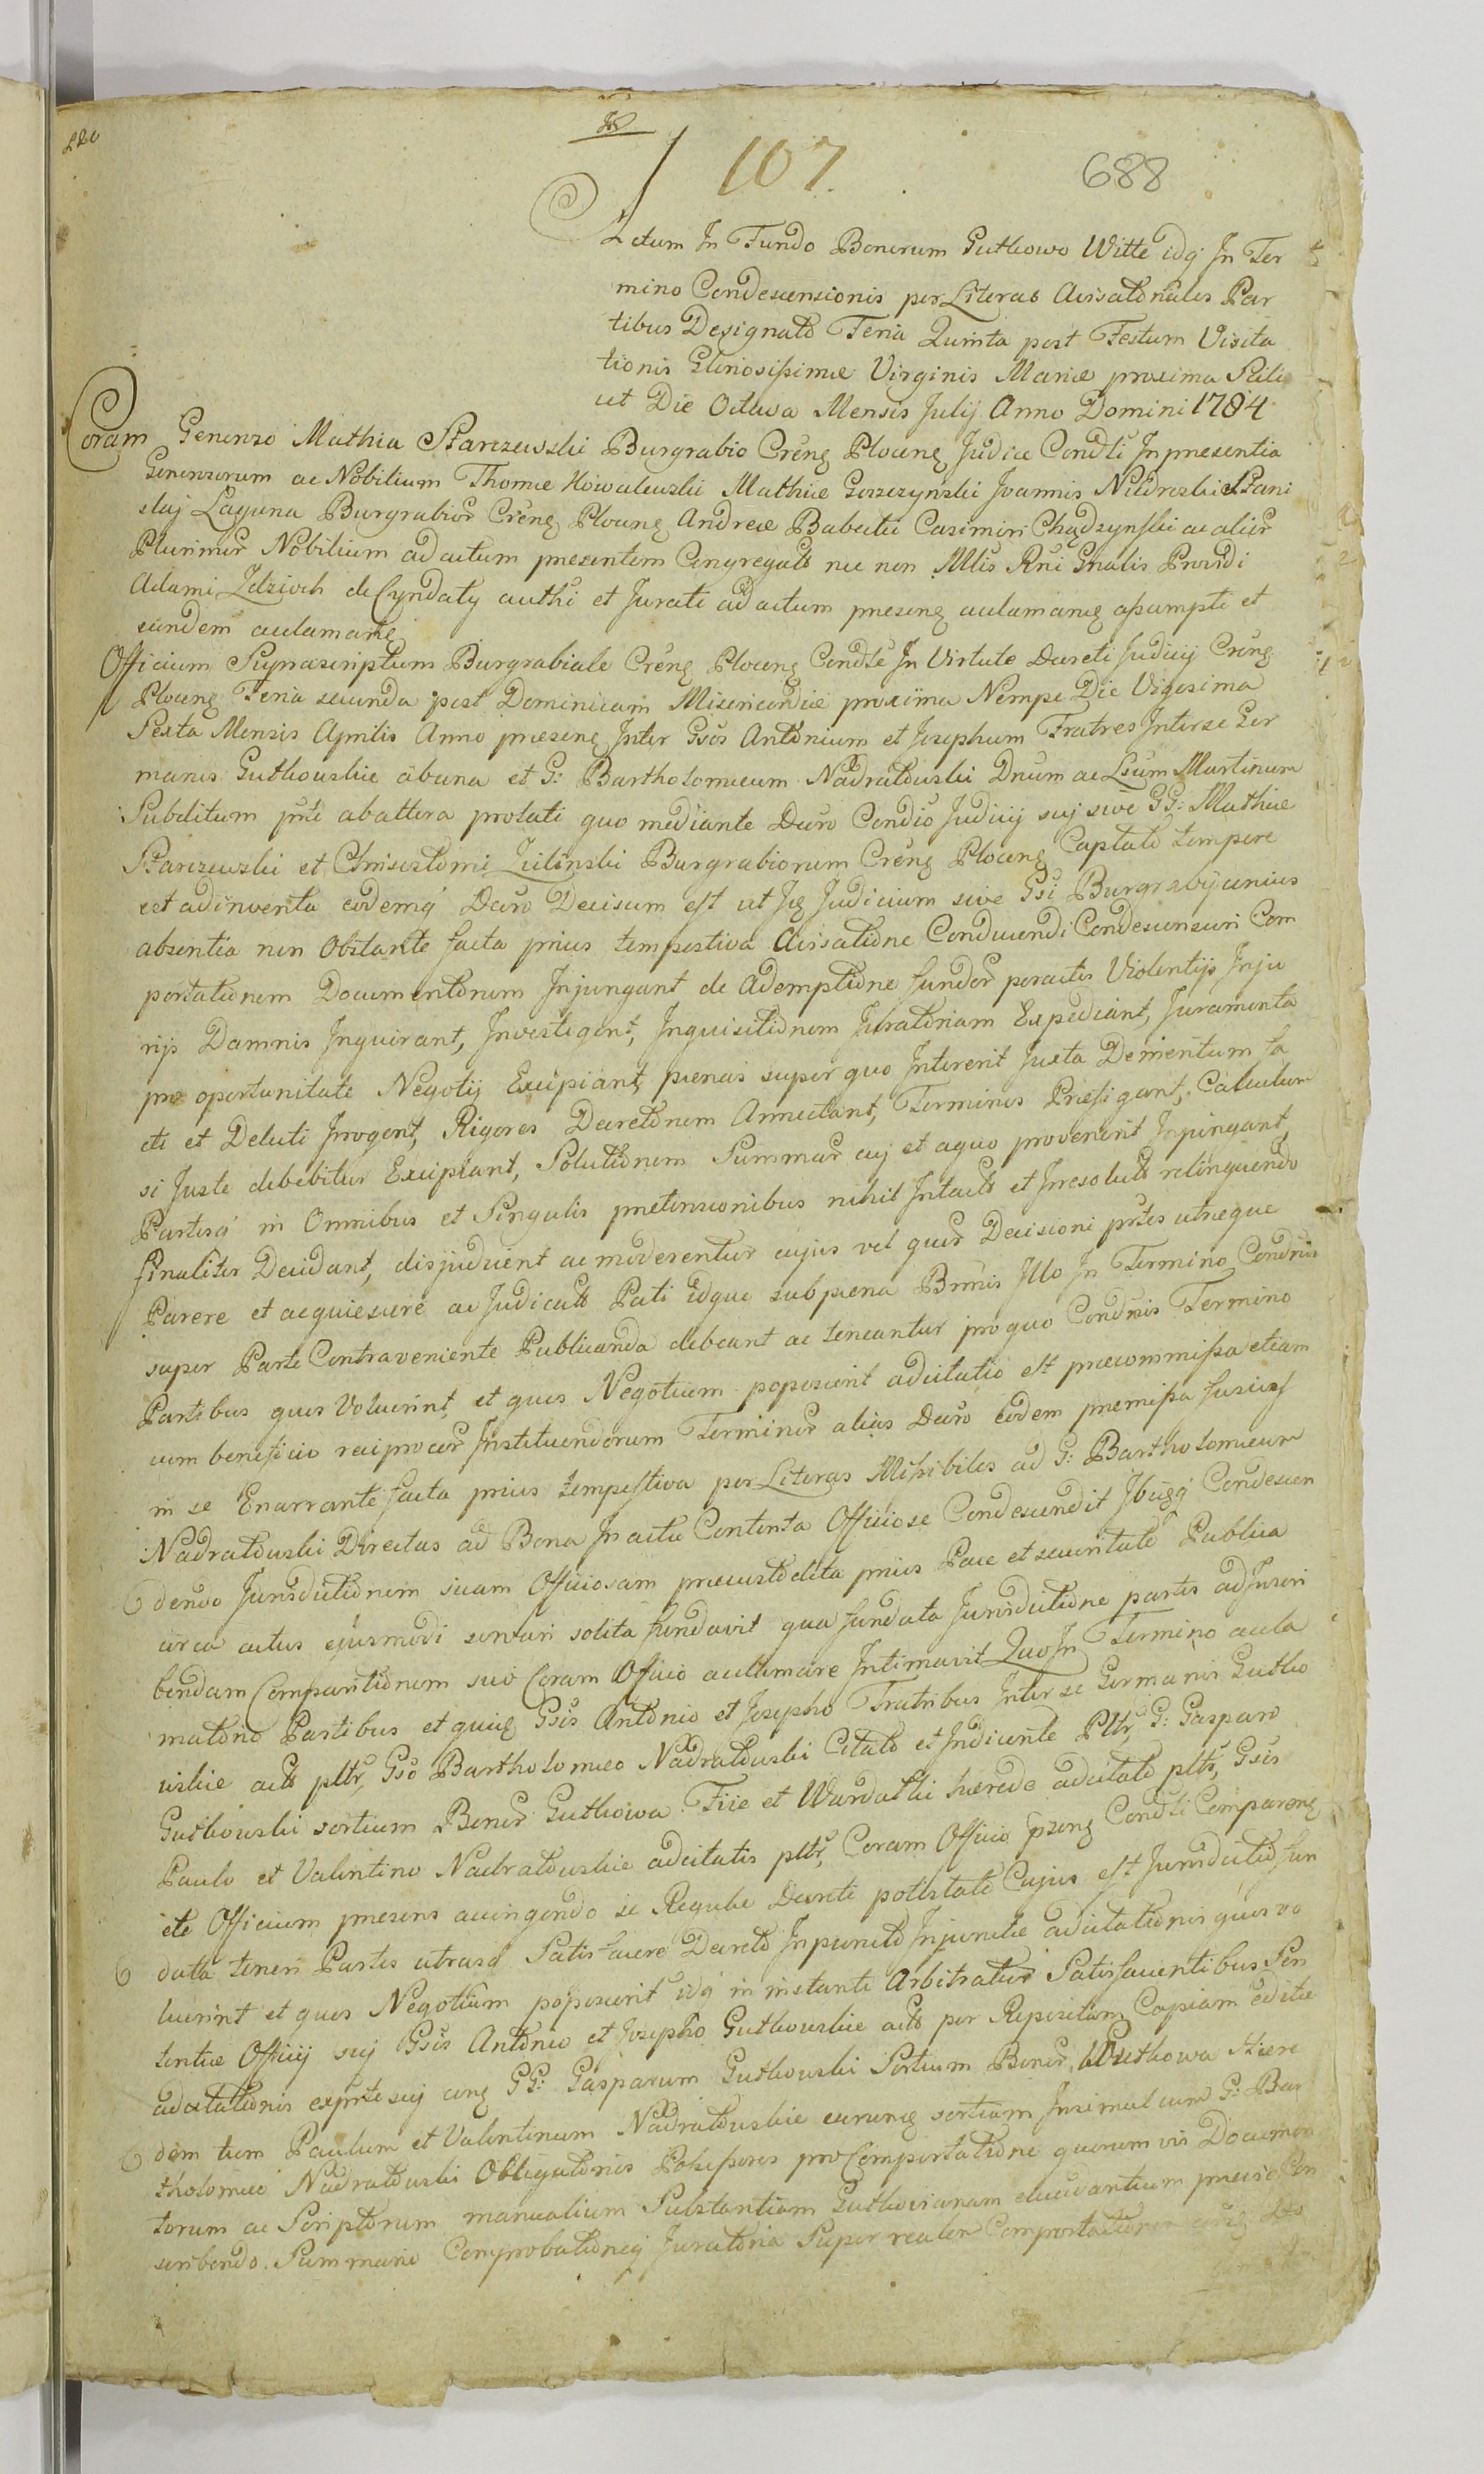 107.
688
Actum In Fundo Bonorum Gutkowo Witte idq In Ter
mino Condescensionis per Literas Avisatoriales Par
tibus Designato Feria Quinta post Festum Visita
tionis Gloriosissimæ Virginis Mariæ proxima Scili
cet Die Octava Mensis Julij Anno Domini 1784
Coram Generoso Mathia Starczewski Burgrabio Creng Ploceng Judice Condli In presentia
Generosorum ac Nobilium Thomæ Kowalewski Mathiæ Goszczynski Joannis Nidroski Stani
slaj Laguna Burgrabior Creng Ploceng Andreæ Babecki Casimiri Chądzynski ac alior
Plurimor Nobilium ad actum presentem Congregato nec non Mlis Rni Gnalis Providi
Adami Zdzioch de Cyndaty authi et Jurati ad actum preseng aclamang assumpti et
eundem aclamang
Officium Supra scriptum Burgrabiale Creng Ploceng Condle In Virtute Decreti Judicij Creng
Ploceng Feria secunda post Dominicam Misericordiæ proxima Nempe Die Vigesima
Sexta Mensis Aprilis Anno preseng Inter Gsos Antonium et Josephum Fratres Inter se Ger
manos Gutkowskie ab una et G: Bartholomæum Nadratowski Dnum ac Lsum Martinum
Subditum prte ab altera prolati quo mediante Decro Condio Judicij sej sive GG: Mathiæ
Starczewski et Chrisostomi Zielinski Burgrabiorum Creng Ploceng Captato tempore
et adinventa eodemq Decro Decisum est ut Jg Judicium sive Gsi Burgrabij unius
absentia non Obstante facta prius tempestiva Avisatione Conducendi Condescensuri Com
portationem Documentorum Injungant de Ademptione fundor peractis Violentijs Inju
rijs Damnis Inquirant, Investigent, Inquisitionem Juratoriam Expediant, Juramenta
pro oportunitate Negotij Excipiant, pænas super quo Intererit Juxta Demeritum fa
cti et Delicti Irrogent, Rigores Decretorum Annectant, Terminos Præfigant, Calculum
si Juste debebitur Excipiant, Solutionem Summar cuj et a quo provenerit Inpingant
Partesq in Omnibus et Singulis prætensionibus nihil Intacto et Irresoluto relinquendo
finaliter Decidant, disjudicent ac moderentur cujus vel quor Decisioni prtes utræque
Parere et acquiescere ac Judicato Pati idque sub pæna Bnnis Illo In Termino Condnis
super Parte Contraveniente Publicanda debeant ac teneantur pro quo Condnis Termino
Partibus quos Voluerint et quos Negotium poposcerit adcitatio est præcommissa etiam
cum beneficio reciprocor Instituendorum Terminor alias Decro eodem premissa fusius
in se Enarrante facta prius tempestiva per Literas Missibiles ad G: Bartholomæum
Nadratowski Directas ad Bona In actu Contenta Officiose Condescendit Ibiqq Condescen
dendo Jurisdictionem suam Officiosam præcustodita prius Pace et securitate Publica
circa actus ejusmodi servari solita fundavit qua fundata Jurisdictione partes ad Inscri
bendam Comparitionem suo Coram Officio acclamare Intimavit Quo In Termino acla
matorio Partibus et quidg Gsis Antonio et Josepho Fratribus Inter se Germanis Gutko
wskie actb pltr, Gso Bartholomæo Nadratowski Citato et Indicente Pltr, G: Gasparo
Gutkowski sortium Bonor Gutkowa Fiie et Wardalki hærede adcitato pltr, Gsis
Paulo et Valentino Nadratowskie adcitatis pltr, Coram Officio preng Condli Compareng
ete Officium presens accingendo se Regulæ Decreti potestate Cujus est Jurisdictio fun
data teneri Partes utrasq Satisfacere Decreto In puncto Injunctæ adcitationis quos vo
luerint et quos Negotium poposcerit idq in instanti Arbitratur Satisfacientibus Sen
tentiæ Officij sej Gsis Antonio et Josepho Gutkowskie actb per Repositam Copiam editæ
adcitationis exprte sej cong GG: Gasparum Gutkowski Sortium Bonor Gutkowa Hære
dem tum Paulum et Valentinum Nadratowskie earung sortium Insimul cum G: Bar
tholomæo Nadratowski Obligatorios Possessores pro Comportatione quorum vis Documen
torum ac Scriptorum manualium Substantiam Gutkovianam elucidantium præcise Con
scribendo. Summario Comprobationeq Juratoria Super reali Comportatione